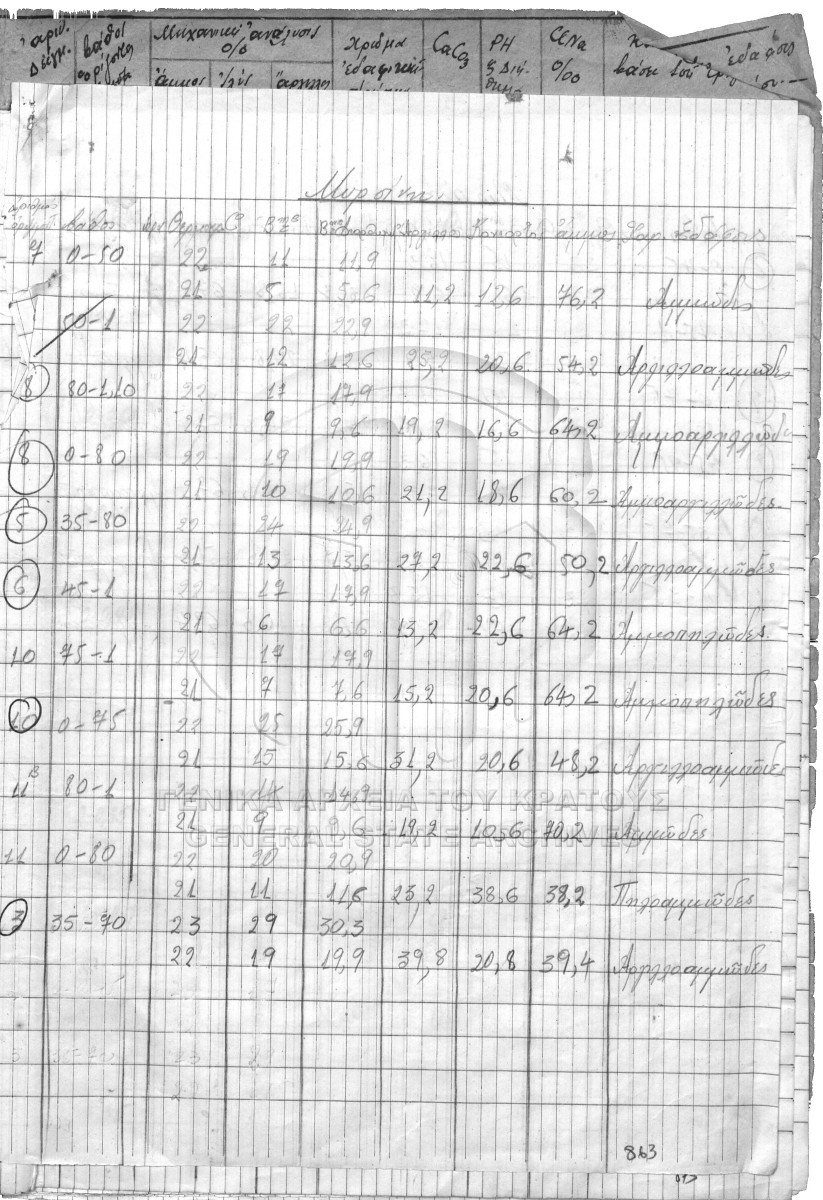 ἀριθ. βάθος Μηχανική ἀνάλυσις Χρῶμα CaCO3 PH ClNa ἐδάφους
Δείγμ. ὁρίζοντος ο/ο ἐδαφικοῦ ο/οο βάσει τοῦ
ἄμμος ἰλύς ἄργιλλος
Μυρσίνη
ἀριθμός βάθος Θερμοκρ Β ἄργιλλος ἄμμος Χαρ. ἐδάφους
7 0-50 22 11 11,9
21 5 5,6 11,2 12,6 76,2 Ἀμμῶδες
50-1 22 22 22,9
21 12 12,6 25,2 20,6 54,2 Ἀργιλλοαμμῶδες
8 80-1,10 22 17 17,9
21 9 9,6 19,2 16,6 64,2 Ἀμμοαργιλλῶδες
8 0-80 22 19 19,9
21 10 10,6 21,2 18,6 60,2 Ἀμμοαργιλλῶδες
5 35-80 22 24 24,9
21 13 13,6 27,2 22,6 50,2 Ἀργιλλοαμμῶδες
6 45-1 22 17 17,9
21 6 6,6 13,2 22,6 64,2 Ἀμμοπηλῶδες
10 75-1 22 17 17,9
21 7 7,6 15,2 20,6 64,2 Ἀμμοπηλῶδες
10 0-75 22 25 25,9
21 15 15,6 31,2 20,6 48,2 Ἀργιλλοαμμῶδες
11β 80-1 22 14 14,9
ΓΕΝΙΚΑ ΑΡΧΕΙΑ ΤΟΥ ΚΡΑΤΟΥΣ
21 9 9,6 19,2 10,6 70,2 Ἀμμῶδες
GENERAL STATE ARCHIVES
11 0-80 22 20 20,9
21 11 11,6 23,2 38,6 38,2 Πηλοαμμῶδες
3 35-70 23 29 30,3
22 19 19,9 39,8 20,8 39,4 Ἀργιλλοαμμῶδες
863